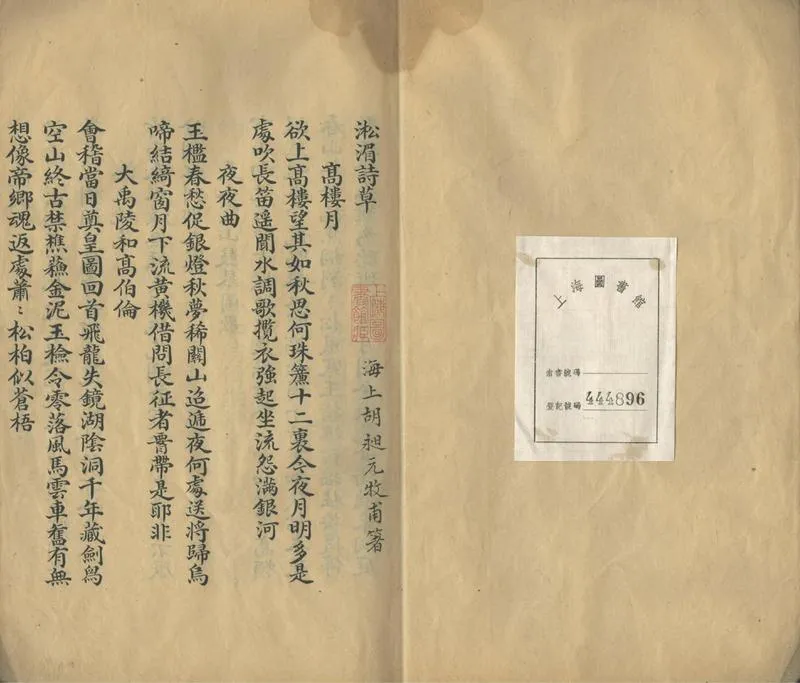 上海圖書館
索書號碼
登記號碼 444896
淞湄詩草
海上胡昶元牧甫著
髙樓月
欲上髙樓望其如秋思何珠簾十二裏今夜月明多是
處吹長笛遥聞水調歌攬衣強起坐流怨滿銀河
夜夜曲
玉檻春愁促銀燈秋夢稀關山迢遞夜何處送將歸烏
啼結綺窗月下流黃機借問長征者胷帶是耶非
大禹陵和髙伯倫
會稽當日奠皇圖回首飛龍失鏡湖陰洞千年藏劍舄
空山終古禁樵蘓金泥玉檢今零落風馬雲車奮有無
想像帝鄉魂返處蕭〻松柏似蒼梧